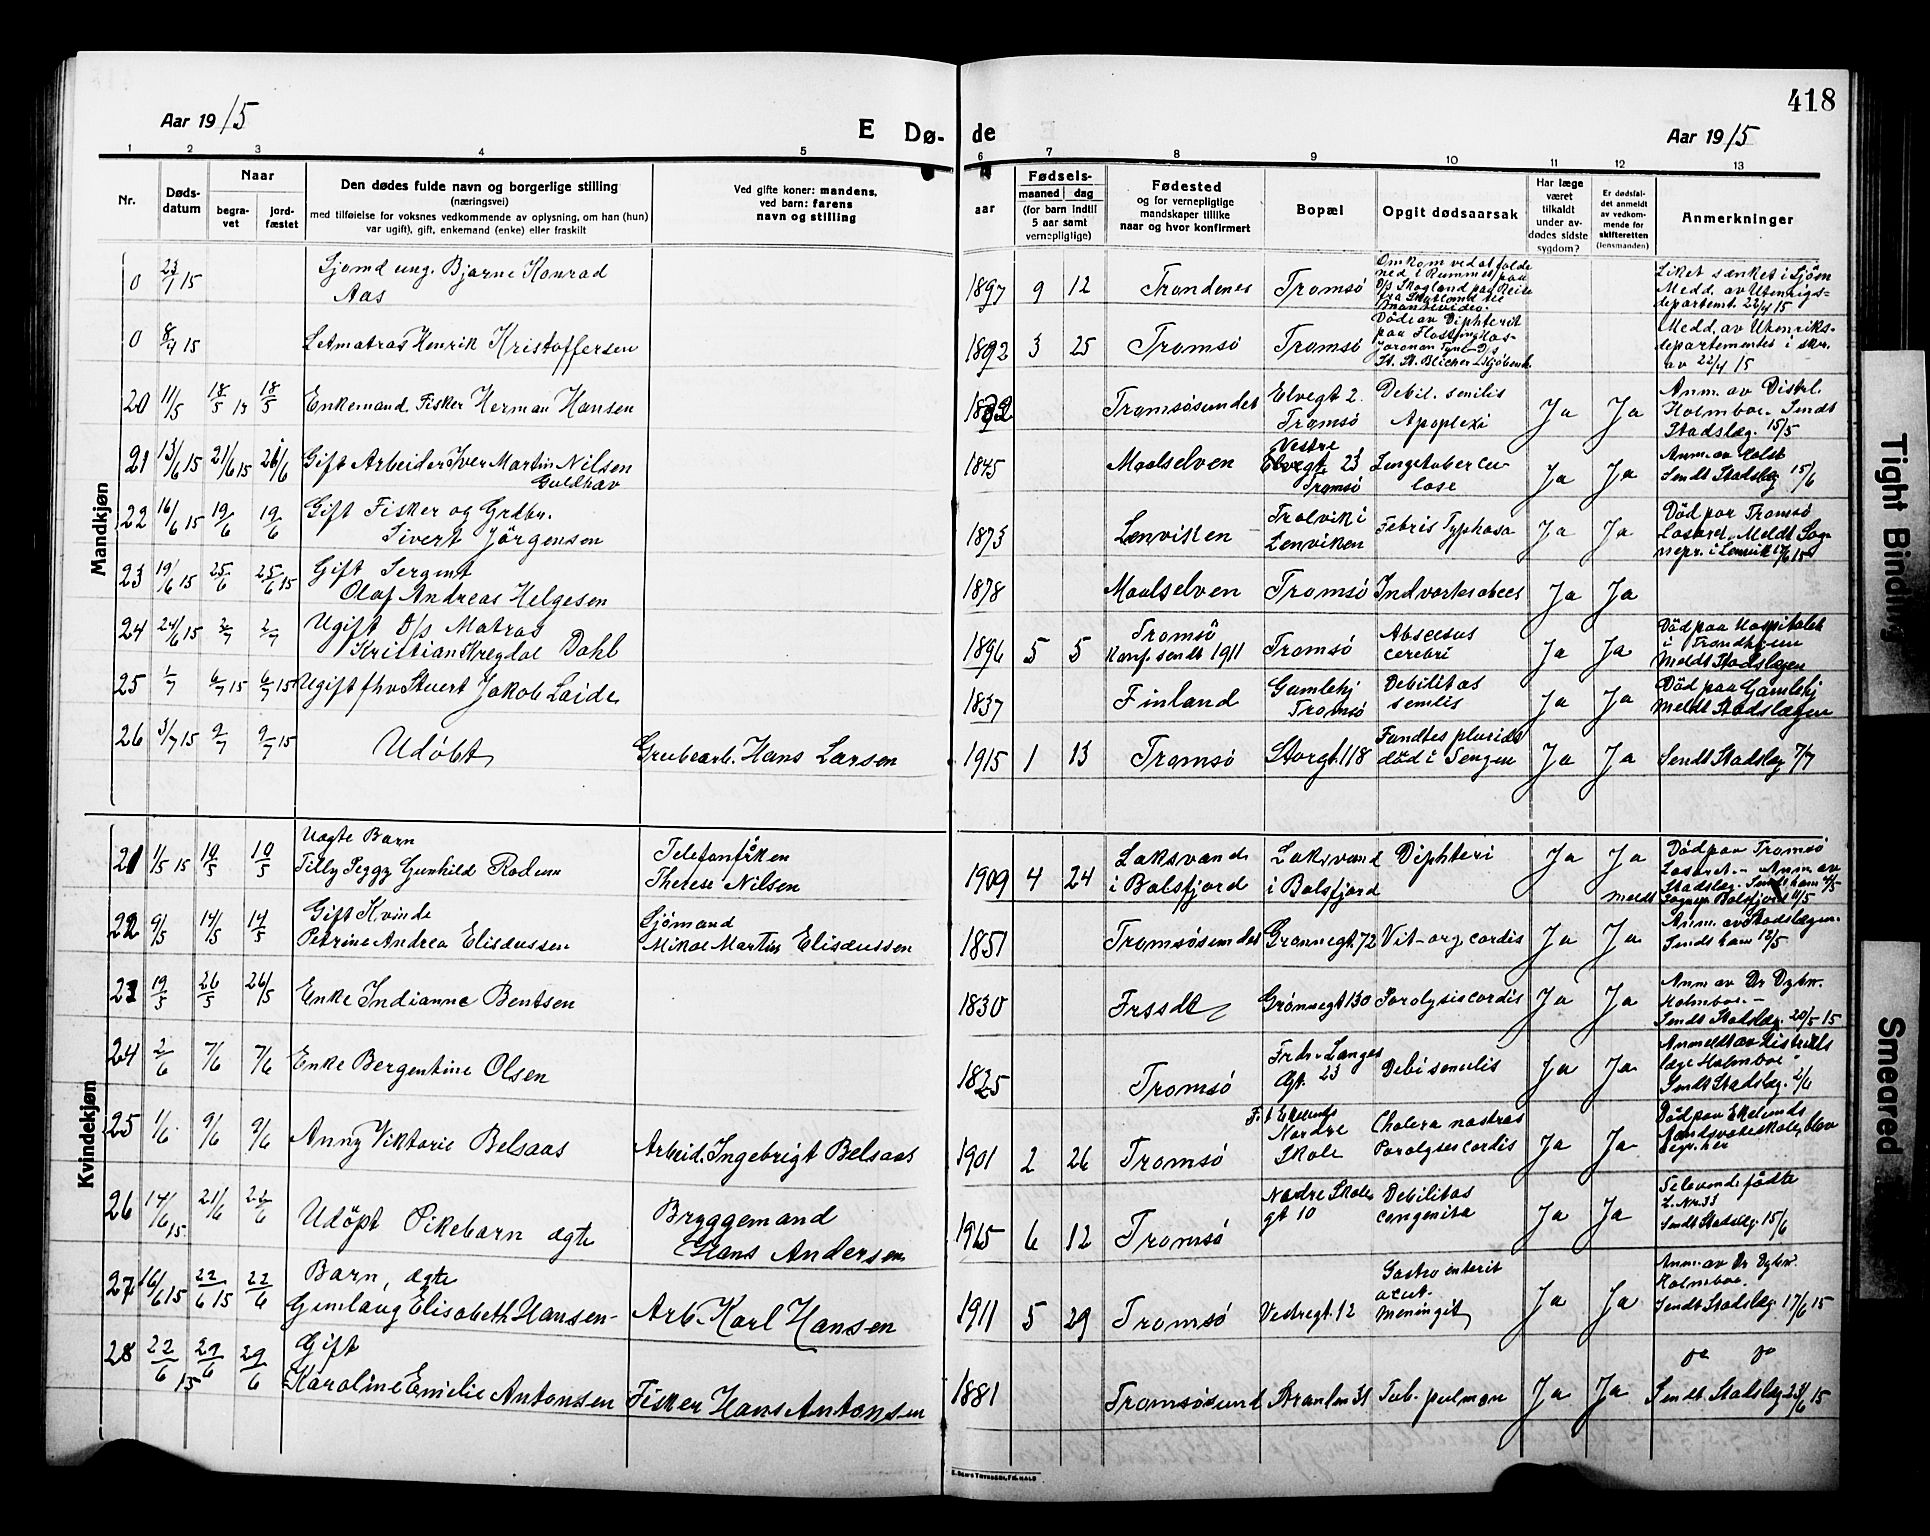 418
Aar 1915
E Dø-
de
Aar 1915
1 2 3 4 5 6 7 8 9 10 11 12 13
Nr.
Døds-
datum
Naar
begra-
vet
jord-
fæstet
Den dødes fulde navn og borgerlige stilling
(næringsvei)
med tilføielse for voksnes vedkommende av oplysning, om han (hun)
var ugift), gift, enkemand (enke) eller fraskilt
Ved gifte koner: mandens,
ved barn: farens
navn og stilling
aar
Fødsels-
maaned dag
(for barn indtil
5 aar samt
vernepligtige)
Fødested
og for vernepligtige
mandskaper tillike
naar og hvor konfirmert
Bopæl
Opgit dødsaarsak
Har læge
været
tilkaldt
under av-
dødes sidste
sygdom?
Er dødsfal-
det anmeldt
av vedkom-
mende for
skifteretten
(lensmanden)
Anmerkninger
Mandkjøn
0 23/1 15 Sjømd ung. Bjarne Konrad
Aas
1897 9 12 Trondenes Tromsø
Omkom ved at falde
ned i Rummet paa
D/s Skogland paa Reise
fra Skotland til
Montevideo
Liket sænket i Sjøen
Medd. av Utenrigs-
departemt. 22/4 15
0 8/4 15 Letmatros Henrik Kristoffersen
1892 3 25 Tromsø Tromsø
Døde av Diphterit
paa Hospital
St. St. Blicher
Medd. av Utenriks-
departementet i skr.
av 22/4 15
20 11/5 18/5 15 18/5 Enkemand Fisker Herman Hansen
1832 Tromsøsundet Elvegt 2.
Tromsø
Debil. senilis
Apoplexi
Ja Ja
Anm. av Distrl.
Holmboe. Sendt
Stadslæg. 15/5
21 13/6 15 21/6 15 21/6 Gift Arbeider Iver Martin Nilsen
Guldhav
1845 Maalselven Vestre
Elvegt 23
Tromsø
Lungetubercu
lose
Ja Ja
Anm. av Holst
Sendt Stadslæg 15/6
22 16/6 15 19/6 19/6 Gift Fisker og Grdbr.
Sivert Jörgensen
1873 Lenviken Tralvik i
Lenviken
Febris Typhosa Ja Ja
Död paa Tromsö
Lasaret. Meldt Sog-
nepr. i Lenvik 17/6 15
23 19/6 15 25/6 25/6 15 Gift Sergent
Olaf Andreas Helgesen
1878 Maalselven Tromsø Indvortes absces Ja Ja
24 24/6 15 2/7 2/7 Ugift D/s Matros
Kristian Dahl
1896 5 5 Tromsö
Konf. sendt 1911
Tromsø Abscesus
cerebri
Ja Ja
Död paa Hospitalet
i Trondhjem
Meldt Stadslægen
25 1/7 6/7 15 6/7 15 Ugift fhv Stuert Jakob Laide
1837 Finland Gamlehj
Tromsø
Debilitas
senilis
Ja Ja
Död paa Gamlehj
Meldt Stadslægen
26 3/7 15 9/7 9/7 15 Udöbt
Grubearb. Hans Larsen
1915 1 13 Tromsø Storgt. 118
Fandtes
död i Sengen
Ja Ja Sendt Stadslæg 7/7
Kvindekjøn
21 1/5 15 10/5 10/5 Uægte Barn
Tilly Peggy Gunhild Rodum
Telefonfrken
Therese Nilsen
1909 4 24 Laksvand
i Balsfjord
Laksvand
i Balsfjord
Diphteri Ja Ja
Död paa Tromsö
Lasaret.- Anm. av
Stadslæg. Sendt ham 4/5
Meldt Sognepr. Balsfjord 11/5
22 9/5 14/5 14/5 Gift Kvinde
Petrine Andrea Elisæussen
Sjömand
Mikal Martin Elisæussen
1851 Tromsøsundet Grønnegt. 72 Vit. org. cordis Ja Ja
Anm. av Stadslægen.
Sendt ham 12/5
23 19/5 26/5 26/5 Enke Indianne Bentsen
1830 Grønnegt 130 Paralysis cordis Ja Ja
Anm av Dr Dybw.
Holmboe.-
Sendt Stadslæg. 20/5 15
24 2/6 7/6 7/6 Enke Bergentine Olsen
1825 Tromsø Frdr. Langes
Gt. 23
Debi senilis Ja Ja
Anmeldt av Distrikts
læge Holmboe
Sendt Stadslæg. 2/6
25 1/6 9/6 9/6 Anny Viktorie Belsaas
Arbeid. Ingebrigt Belsaas
1901 2 26 Tromsø
Nordre
Skole
Cholera nostras
Paralyses cordis
Ja Ja
Död paa Ekelunds
Aandsvakeskole, blev
begr. her
26 14/6 15. 21/6 22/6 Udöpt Pikebarn ægte
Bryggemand
Hans Andersen
1915 6 12 Tromsø Nordre Skole
gt 10
Debilitas
congenita
Ja Ja
födte
L. Nr. 33
Sendt Stadslæg. 15/6
27 16/6 15 22/6 15 22/6 Barn, ægte
Gunlaug Elisabeth Hansen
Arb. Karl Hansen
1911 5 29 Tromsø Vestregt. 12
Gastro enterit
acut.
Meningit
Ja Ja
Anm. av Dr Dybw.
Holmboe.
Sendt Stadslæg. 17/6 15
28 22/6 15 29/6 29/6 Gift
Karoline Emilie Antonsen
Fisker Hans Antonsen
1881 Tromsøsund Strandvn 31 Tub. pulmon Ja Ja
Sendt. Stadslæg 23/6 15
Tight Binding
Smeared